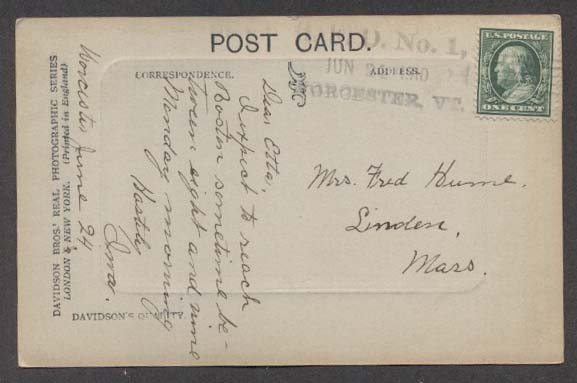 POST CARD.
R.F.D. No. 1,
JUN 24 1910
WORCESTER, VT.
U.S. POSTAGE
ONE CENT
CORRESPONDENCE.
ADDRESS.
Worcester, June 24
Dear Etta,
I expect to reach
Boston sometime be-
tween eight and nine
Monday morning
Hastily
Iwa.
Mrs. Fred Hume.
Linden,
Mass.
DAVIDSON BROS.' REAL PHOTOGRAPHIC SERIES
LONDON & NEW YORK. (Printed in England)
DAVIDSON'S QUALITY.